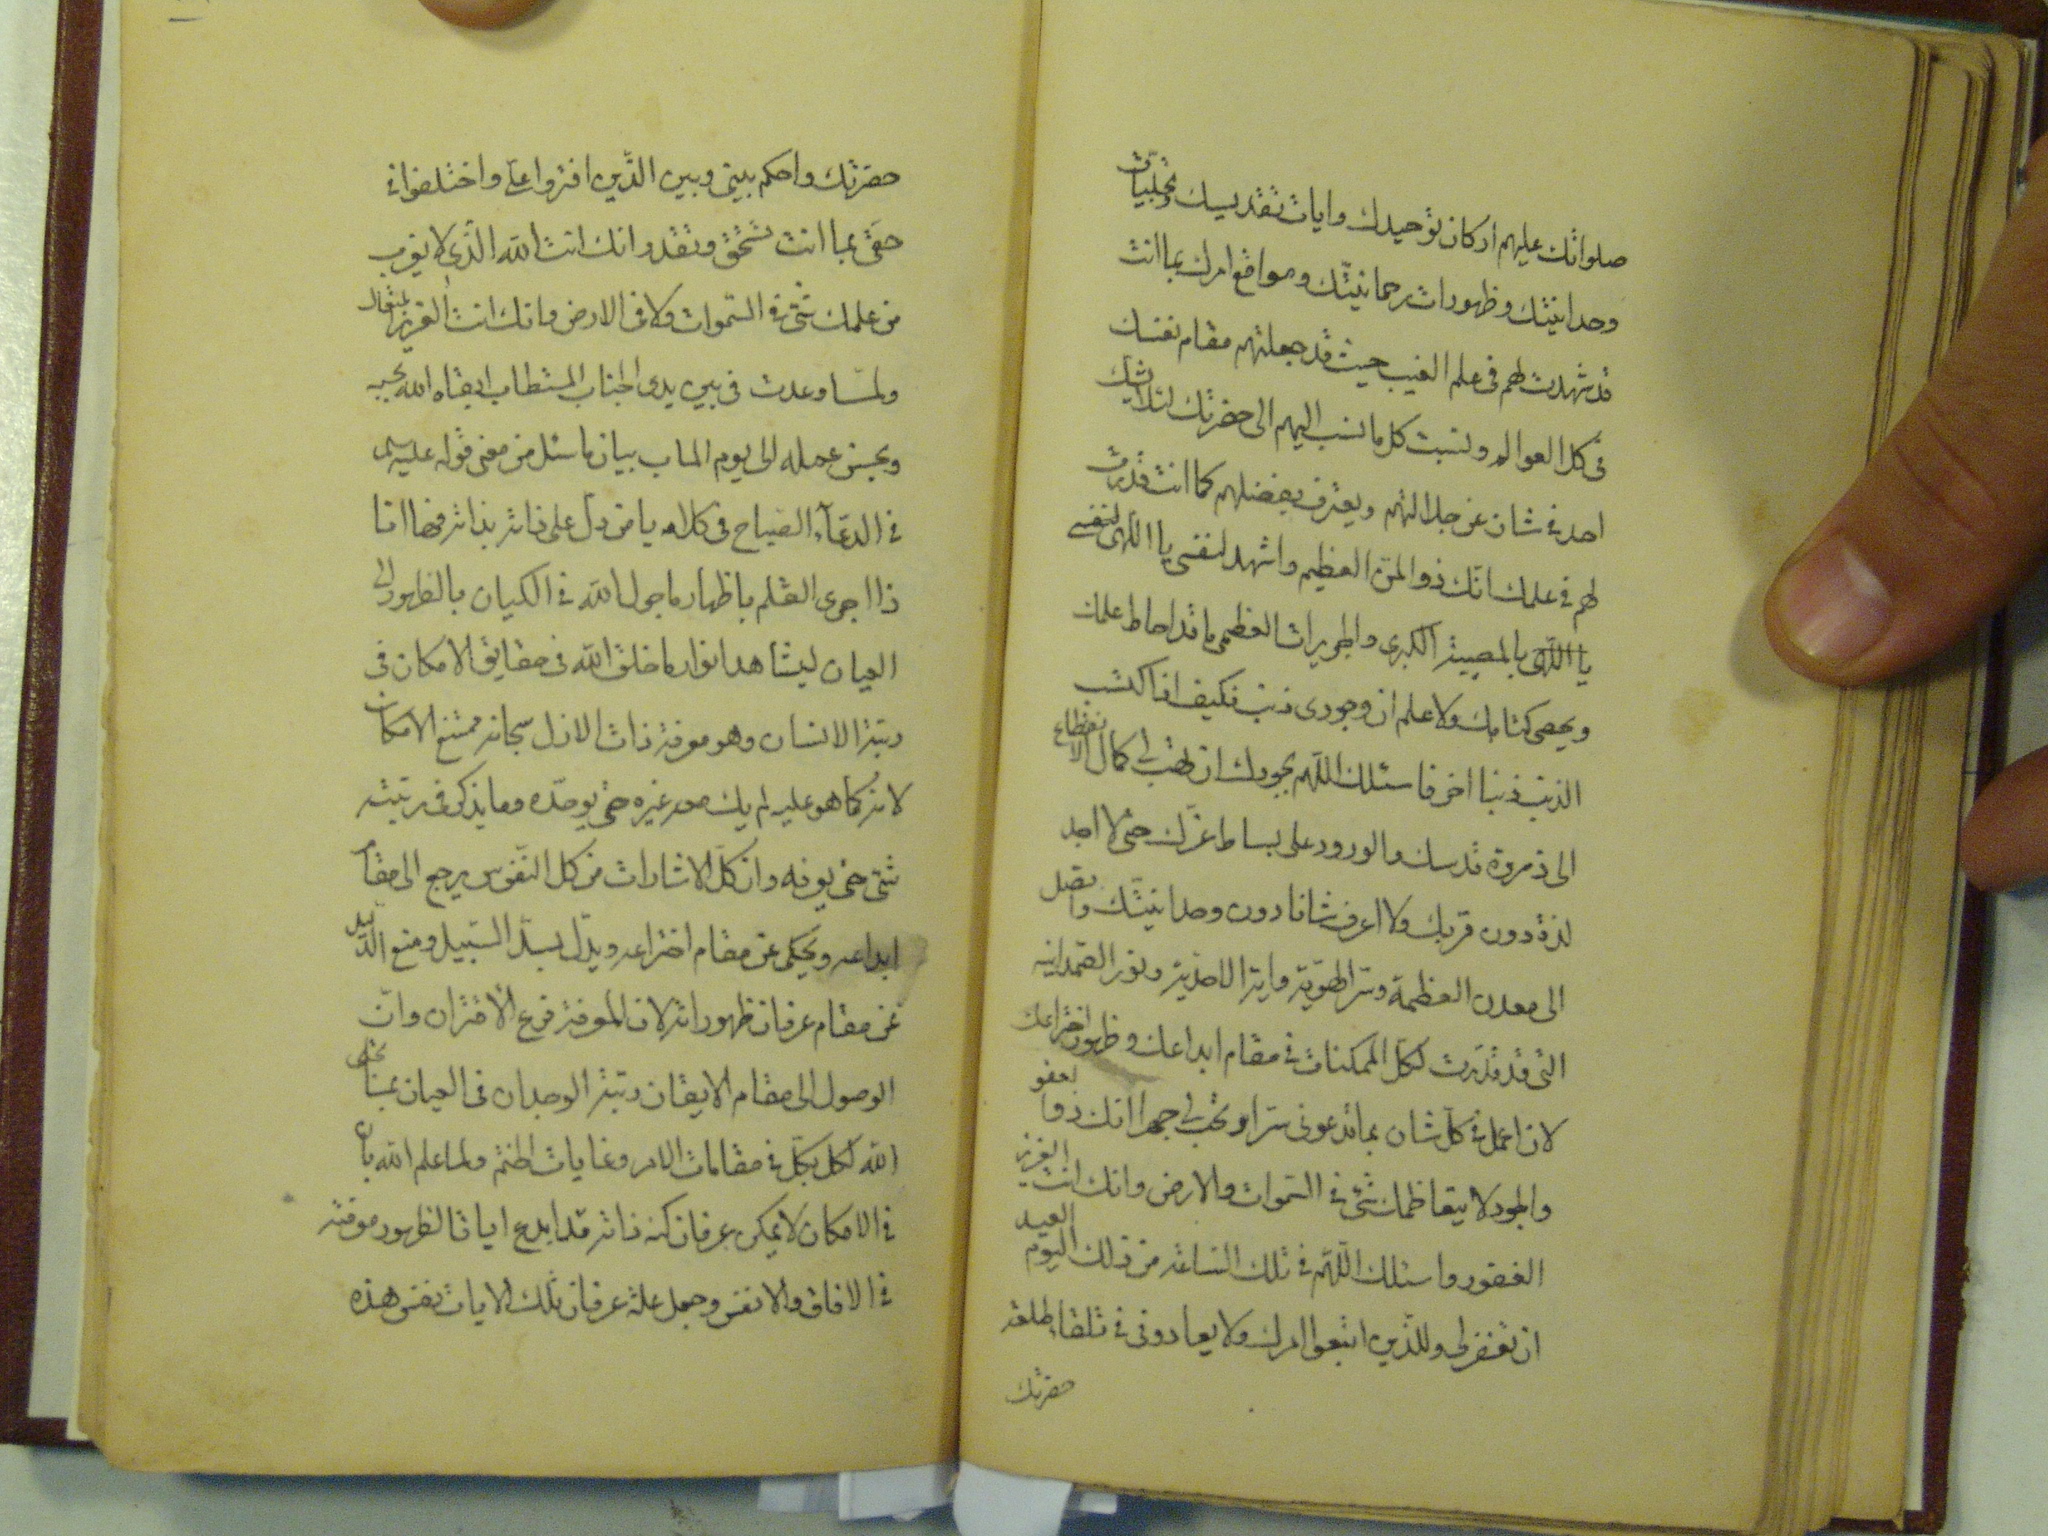 صلواتك عليهم اركان توحيدك وايات تقديسك وتجليات
وحدانيتك وظهورات رحمانيتك ومواقع امرك بما انت
قد شهدت لهم فى علم الغيب حيث قد جعلتهم مقام نفسك
فى كل العوالم ونسبت كل ما نسب اليهم الى حضرتك لئلا يشك
احد فى شان عن جلالتهم ويعترف بفضلهم كما انت قدرت
لهم فى علمك انك ذو المن العظيم واشهد لنفسى يا الهى لنفسى
يا الهى بالمصيبة الكبرى والجريرات العظمى ما قد احاط علمك
ويحصى كتابك ولا علم ان وجودى ذنب فكيف اذا اكتسب
الذنب ذنبا اخر فاسئلك اللهم بجودك ان تهب لى كمال الانقطاع
الى ذروة قدسك والورود على بساط عزك حتى لا اجد
لذة دون قربك ولا اعرف شانا دون وحدانيتك واتصل
الى معدن العظمة وسر الهوية واية الاحدية ونور الصمدانية
التى قد قدرت لكل الممكنات فى مقام ابداعك وظهور اختراعك
لان اعمل فى كل شان بما تدعونى سرا وتحب لى جهرا انك ذو العفو
والجود لا يتعاظمك شئ فى السموات والارض وانك انت العزيز
الغفور واسئلك اللهم فى تلك الساعة من ذلك اليوم العيد
ان تغفر لى وللذين اتبعوا امرك ولا يعادونى فى تلقاء طلعة
حضرتك
حضرتك واحكم بينى وبين الذين افتروا على واختلفوا فى
حقى بما انت تستحق وتقدر انك انت الله الذى لا يعزب
من علمك شئ فى السموات ولا فى الارض وانك انت العزيز المتعال
ولما وعدت فى بين يدى الجناب المستطاب ابقاه الله بحبه
وبحسن عمله الى يوم الماب بيان ما سئل من معنى قوله عليه سلم
فى الدعاء الصباح فى كلام يا من دل على ذاته بذاته فها انا
ذا اجرى القلم باظهار ما جول الله فى الكيان بالظهور الى
العيان ليشاهد انوار ما خلق الله فى حقايق الامكان فى
رتبة الانسان وهو معرفة ذات الازل سبحانه ممتنع الامكان
لانه كما هو عليه لم يك معه غيره حتى يوحده وما يذكر فى رتبته
شئ حتى يعرفه وان كل الاشارات من كل النفوس يرجع الى مقام
ابداعه ويحكى عن مقام اختراعه ويدل بسد السبيل ومنع الدليل
عن مقام عرفان ظهوراته لان المعرفة فرع الاقتران وان
الوصول الى مقام الايقان رتبة الوجدان فى العيان بما تجلى
الله لكل بكل فى مقامات الامر وغايات الختم ولما علم الله بان
فى الامكان لا يمكن عرفان كنه ذاته قد ابدع ايات الظهور معرفته
فى الافاق والانفس وجعل علة عرفان تلك الايات نفس هذه